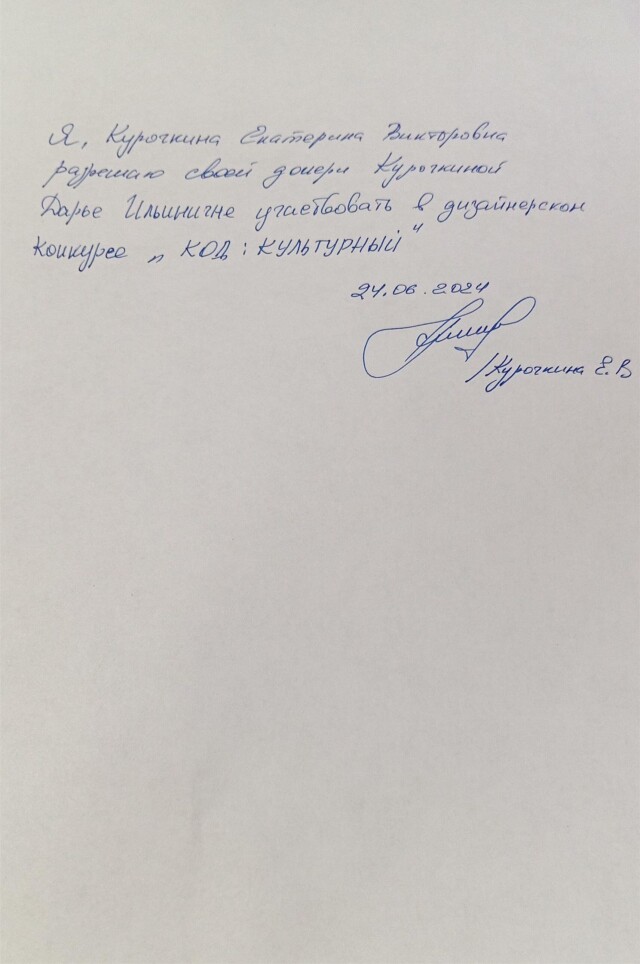 Я, Курочкина Екатерина Викторовна
разрешаю своей дочери Курочкиной
Дарье Ильиничне участвовать в дизайнерском
конкурсе „ КОД : КУЛЬТУРНЫЙ"
24.06.2024
/Курочкина Е.В